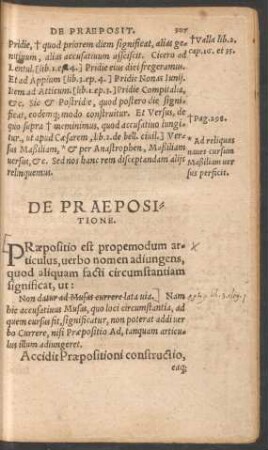 DE PRAEPOSIT.
Pridie, † quod priorem diem significat, alias ge-
nitiuum, alias accusatiuum asciscit. Cicero ad
Lentul. [lib.1.ep.4.] Pridie eius diei fregeramus.
Et ad Appium [lib.3.ep.4.] Pridie Nonas Iunij.
Item ad Atticum. [lib.2.ep.3.] Pridie Compitalia,
&c. Sic & Postridie, quod postero die signi-
ficat, eodem modo construitur. Et Versus, de
quo supra † meminimus, quod accusatiuo iungi-
tur, ut apud Cæsarem, [lib.2.de bell. ciuil.] Ver-
sus Massiliam, * & per Anastrophen, Massiliam
uersus, &c. Sed nos hanc rem disceptandam alijs
relinquemus.
† Valla lib.2.
cap.10. et 55.
† Pag.298.
* Ad reliquos
naues cursum
Massiliam uer
sus perficit.
DE PRAEPOSI-
TIONE.
PRæpositio est propemodum ar-
ticulus, uerbo nomen adiungens,
quod aliquam facti circumstantiam
significat, ut:
Non datur ad Musas currere lata uia.] Nam
hic accusatiuus Musas, quo loci circumstantia, ad
quem cursus fit, significatur, non poterat addi uer
bo Currere, nisi Præpositio Ad, tanquam articu-
lus illum adiungeret.
Accidit Præpositioni constructio,
eaq́;